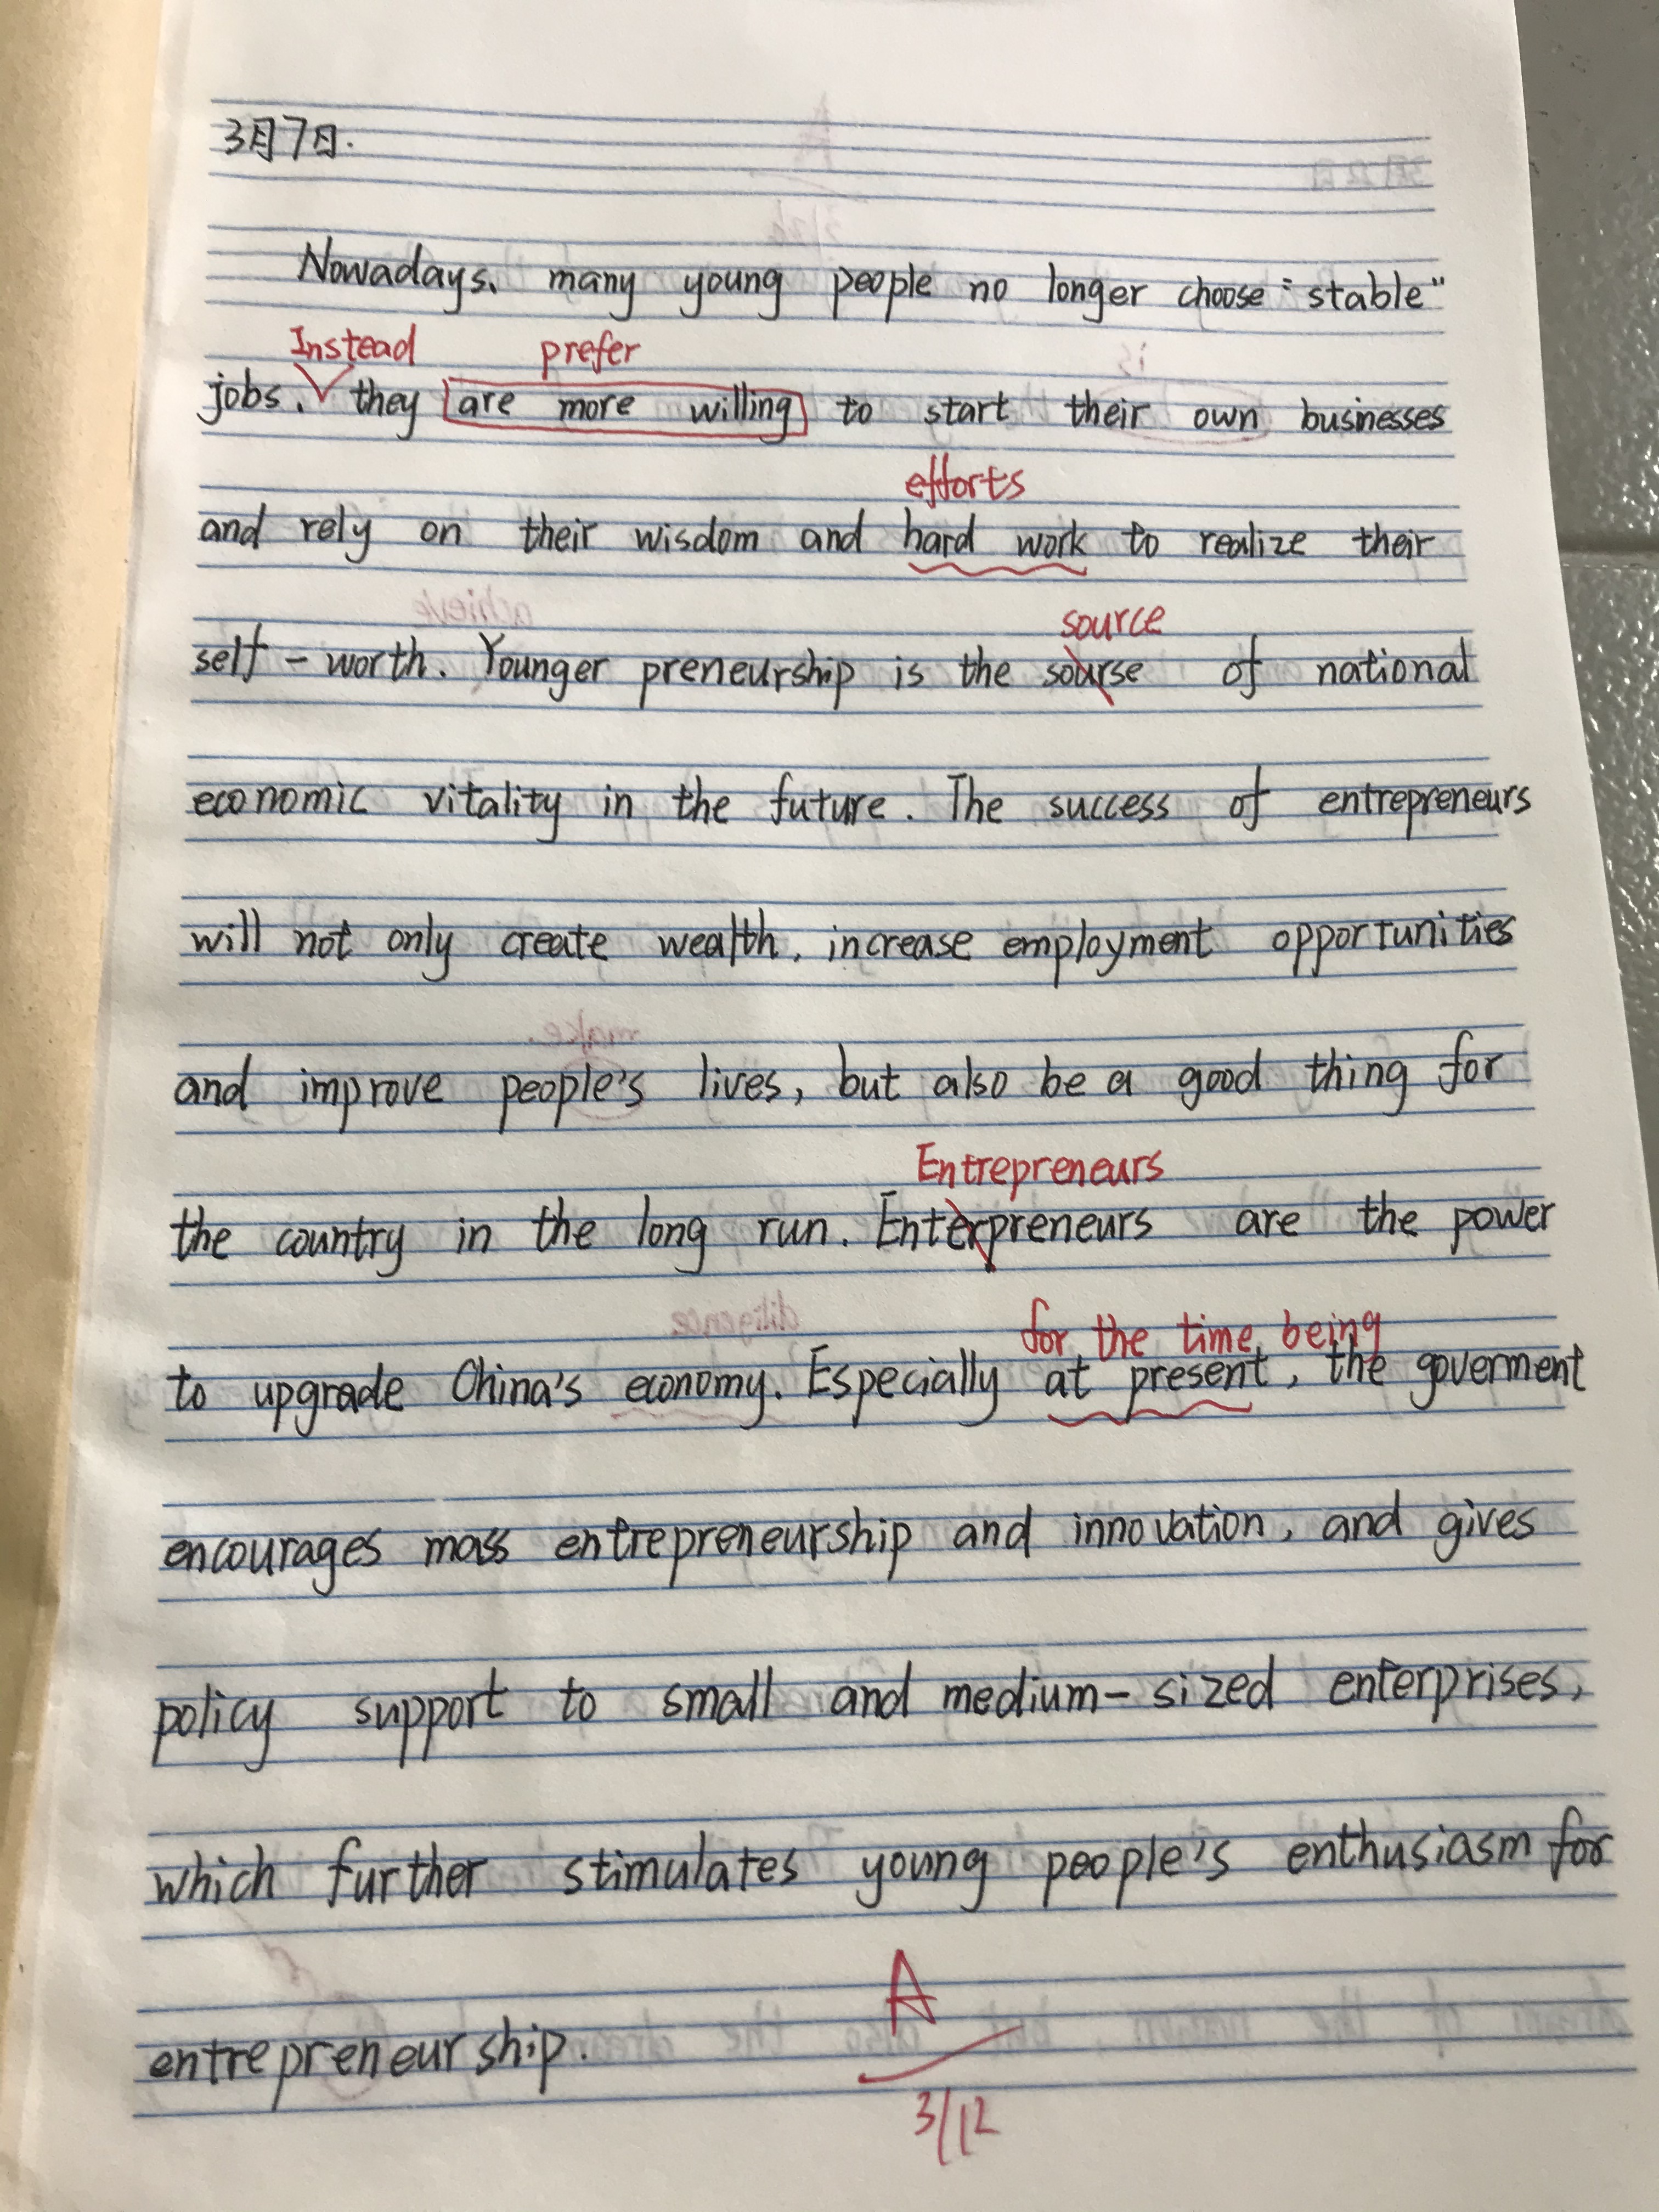 3月7日.
Nowadays, many young people no longer choose "stable"
Instead prefer
jobs. they are more willing to start their own businesses
efforts
and rely on their wisdom and hard work to realize their
source
self-worth. Younger preneurship is the sourse of national
economic vitality in the future. The success of entrepreneurs
will not only create wealth, increase employment opportunities
and improve people's lives, but also be a good thing for
Entrepreneurs
the country in the long run. Enterpreneurs are the power
for the time being
to upgrade China's economy. Especially at present, the goverment
encourages mass entrepreneurship and innovation, and gives
policy support to small and medium-sized enterprises,
which further stimulates young people's enthusiasm for
entrepreneurship.
A
3/12